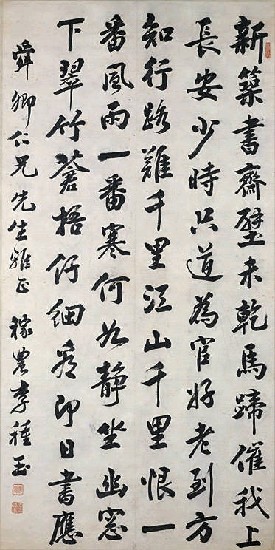 新築書齋壁未乾馬蹄催我上
長安少時只道為官好老到方
知行路難千里江山千里恨一
番風雨一番寒何如靜坐幽窓
下翠竹蒼梧仔細看即日書應
舜卿仁兄先生雅正 稼農李種玉